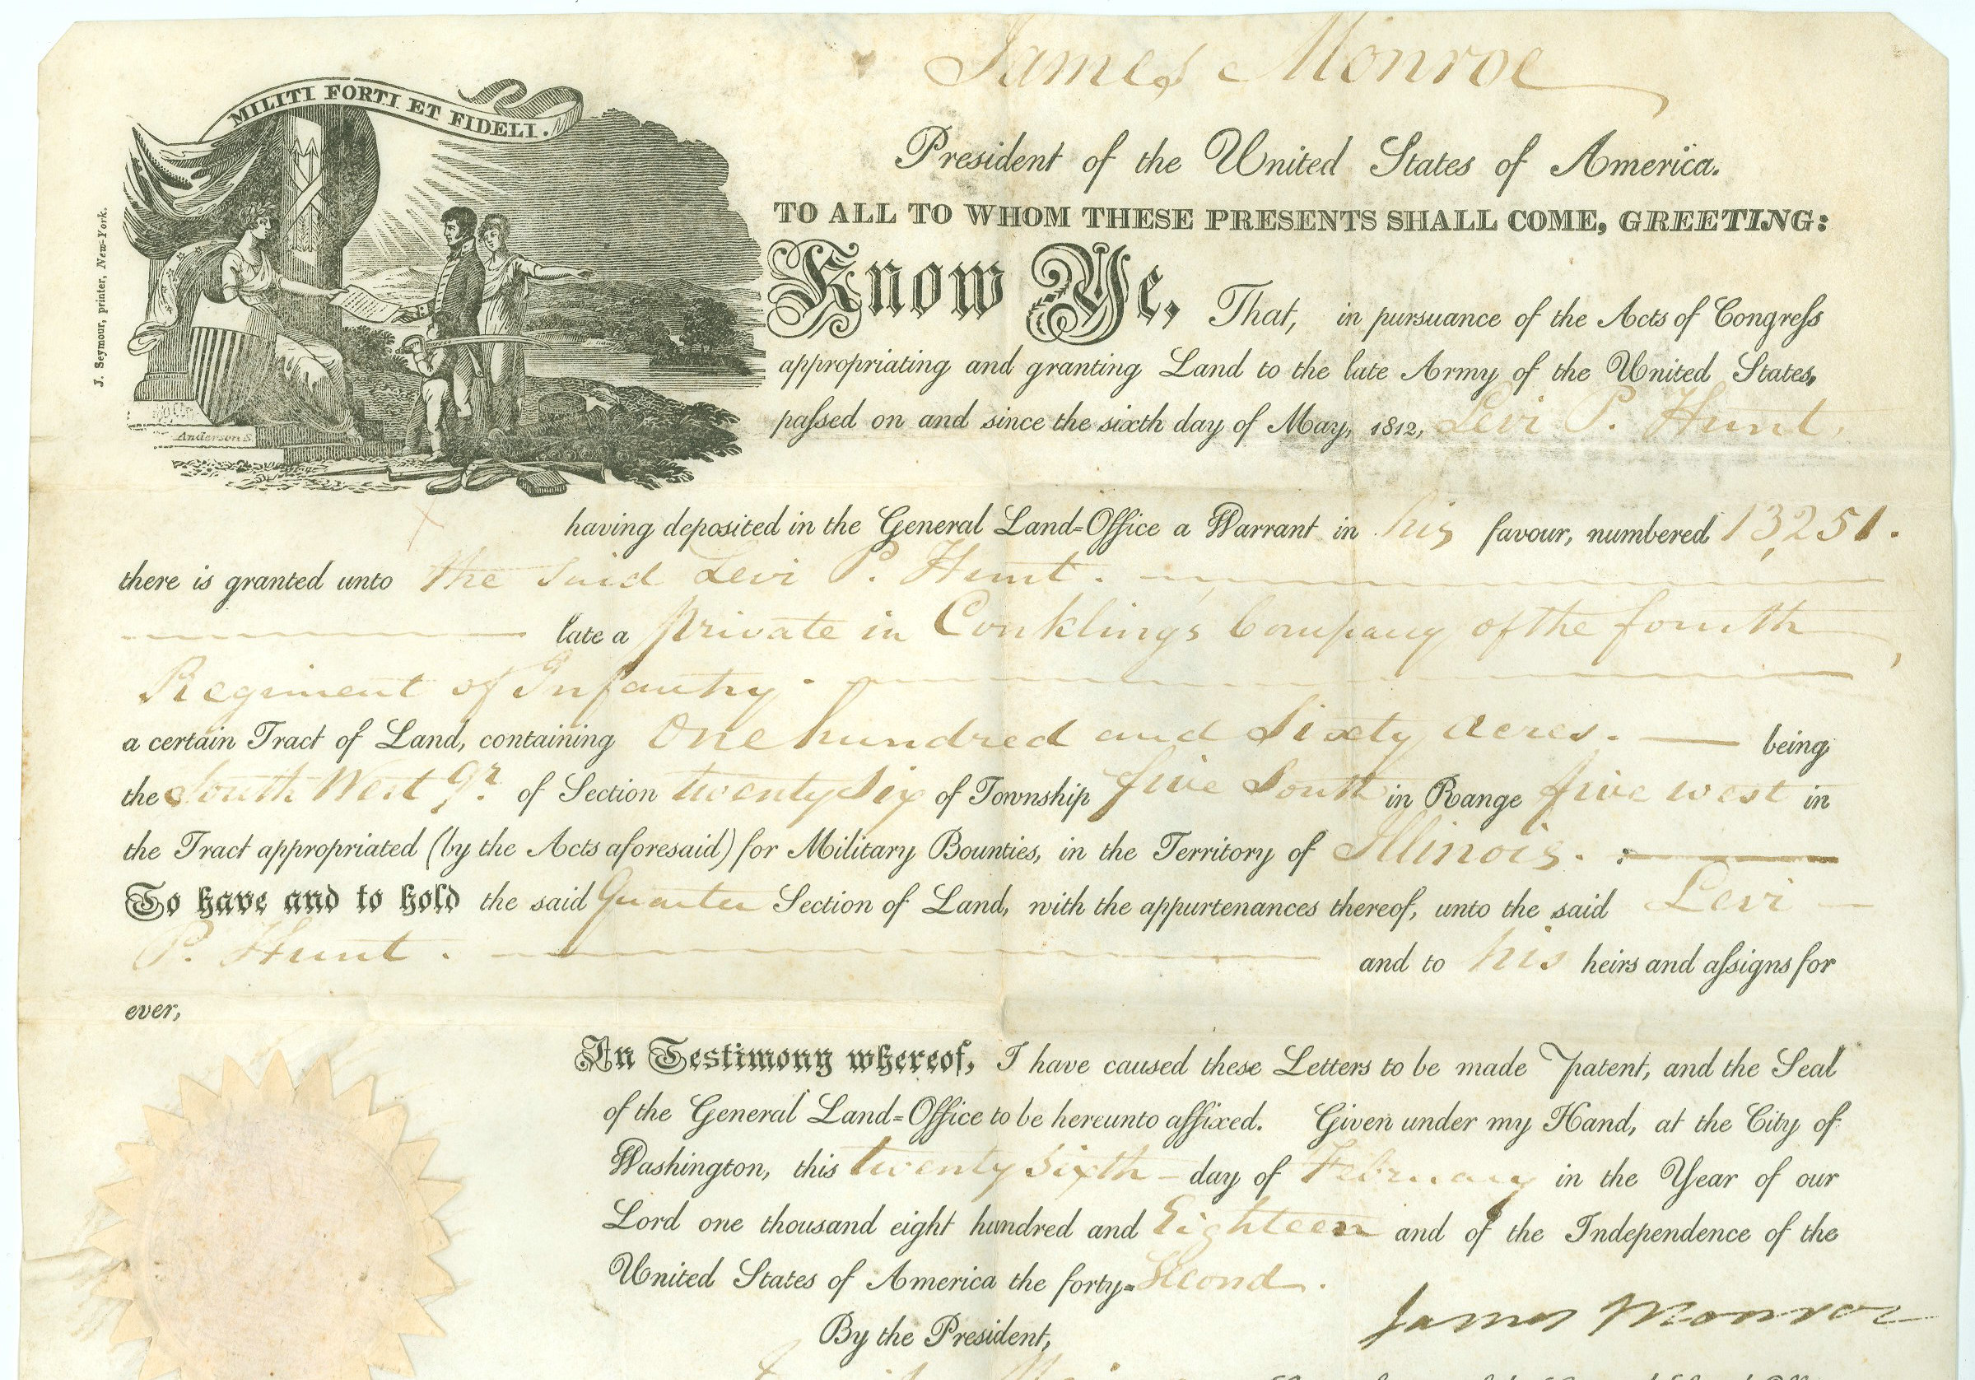 James Monroe
MILITI FORTI ET FIDELI.
President of the United States of America.
TO ALL TO WHOM THESE PRESENTS SHALL COME, GREETING:
Know Ye, That, in pursuance of the Acts of Congreſs
appropriating and granting Land to the late Army of the United States,
paſsed on and since the sixth day of May, 1812, Levi P. Hunt.
J. Seymour, printer, New-York.
Anderson S
having deposited in the General Land-Office a Warrant in his favour, numbered 13,251.
there is granted unto the said Levi P. Hunt.
late a private in Conkling's Company of the fourth
Regiment of Infantry.
a certain Tract of Land, containing One hundred and Sixty acres. being
the South West qr. of Section twenty Six of Township five South in Range five west in
the Tract appropriated (by the Acts aforesaid) for Military Bounties, in the Territory of Illinois.
To have and to hold the said Quarter Section of Land, with the appurtenances thereof, unto the said Levi
P. Hunt. and to his heirs and aſsigns for
ever,
In Testimony whereof, I have caused these Letters to be made Patent, and the Seal
of the General Land-Office to be hereunto affixed. Given under my Hand, at the City of
Washington, this twenty sixth day of February in the Year of our
Lord one thousand eight hundred and Eighteen and of the Independence of the
United States of America the forty-Second.
James Monroe
By the President,